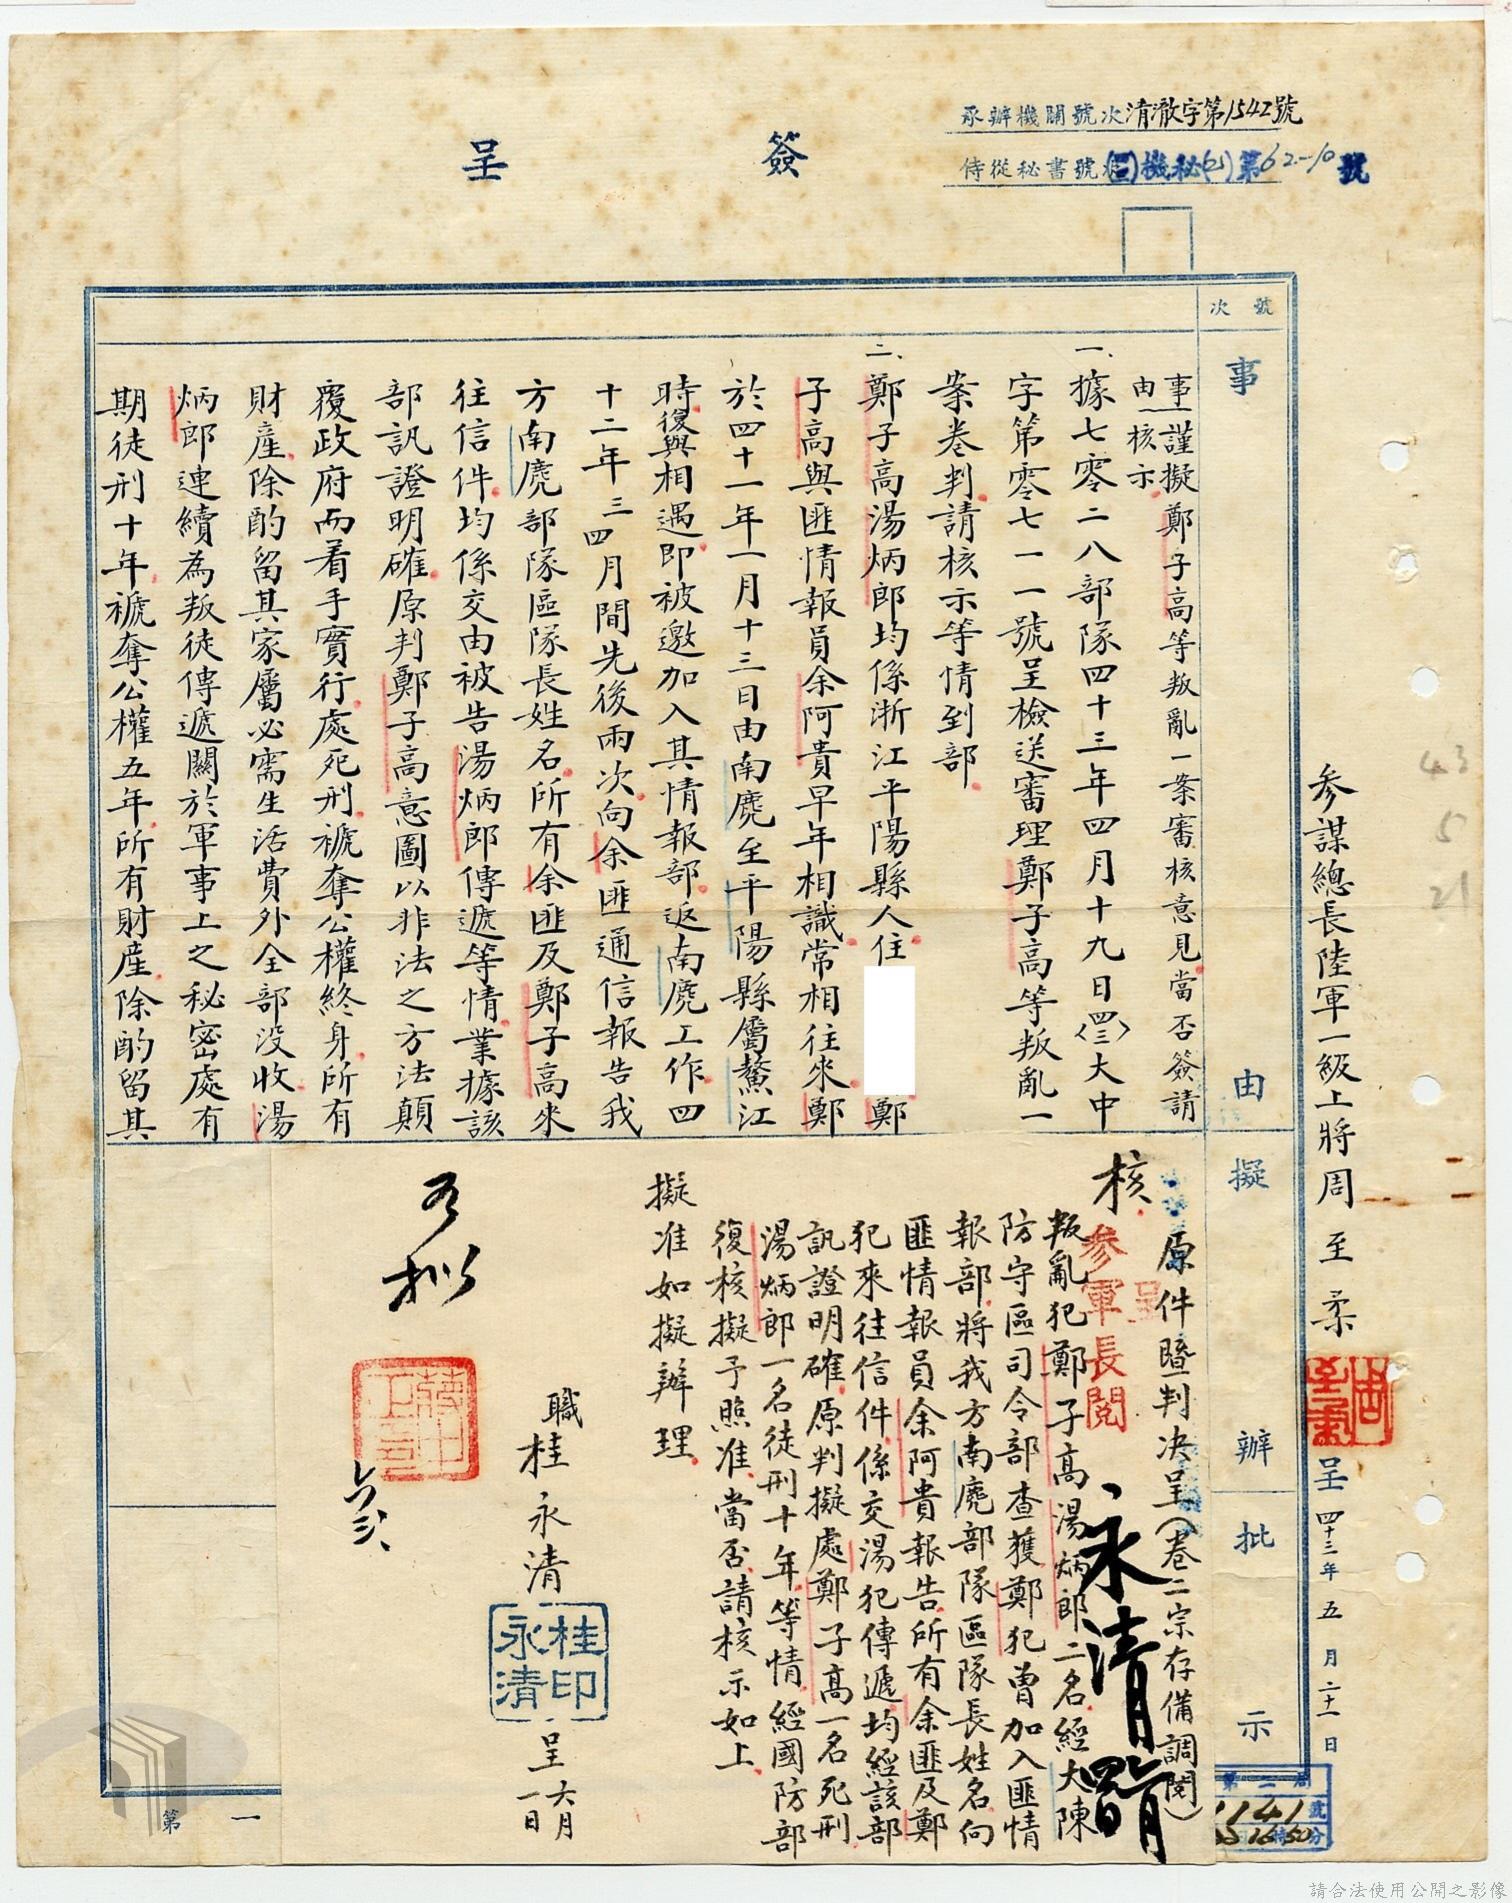 承辦機關號次清澈字第1542號
侍從秘書號次(三)機秘(乙)第62-10號
簽呈
參謀總長陸軍一級上將周至柔
周至柔
呈四十三年五月二十一日
43
5
21
號次
事由
擬辦
批示
事由
謹擬鄭子高等叛亂一案審核意見當否簽請
核示
一、據七零二八部隊四十三年四月十九日(四三)大中
字第零七一一號呈檢送審理鄭子高等叛亂一
案卷判請核示等情到部
二、鄭子高湯炳郎均係浙江平陽縣人住 鄭
子高與匪情報員余阿貴早年相識常相往來鄭
於四十一年一月十三日由南麂至平陽縣屬鰲江
時復與相遇即被邀加入其情報部返南麂工作四
十二年三四月間先後兩次向余匪通信報告我
方南麂部隊區隊長姓名所有余匪及鄭子高來
往信件均係交由被告湯炳郎傳遞等情業據該
部訊證明確原判鄭子高意圖以非法之方法顛
覆政府而着手實行處死刑褫奪公權終身所有
財產除酌留其家屬必需生活費外全部沒收湯
炳郎連續為叛徒傳遞關於軍事上之秘密處有
期徒刑十年褫奪公權五年所有財產除酌留其
原件暨判決呈(卷二宗存備調閱)
核
呈
參軍長閱
永清
叛亂犯鄭子高湯炳郎二名經大陳
防守區司令部查獲鄭犯曾加入匪情
報部將我方南麂部隊區隊長姓名向
匪情報員余阿貴報告所有余匪及鄭
犯來往信件係交湯犯傳遞均經該部
訊證明確原判擬處鄭子高一名死刑
湯炳郎一名徒刑十年等情經國防部
復核擬予照准當否請核示如上
擬准如擬辦理
職桂永清
桂永清印
呈六月一日
如擬
蔣中正印
第二局
1141號
第一
請合法使用公開之影像